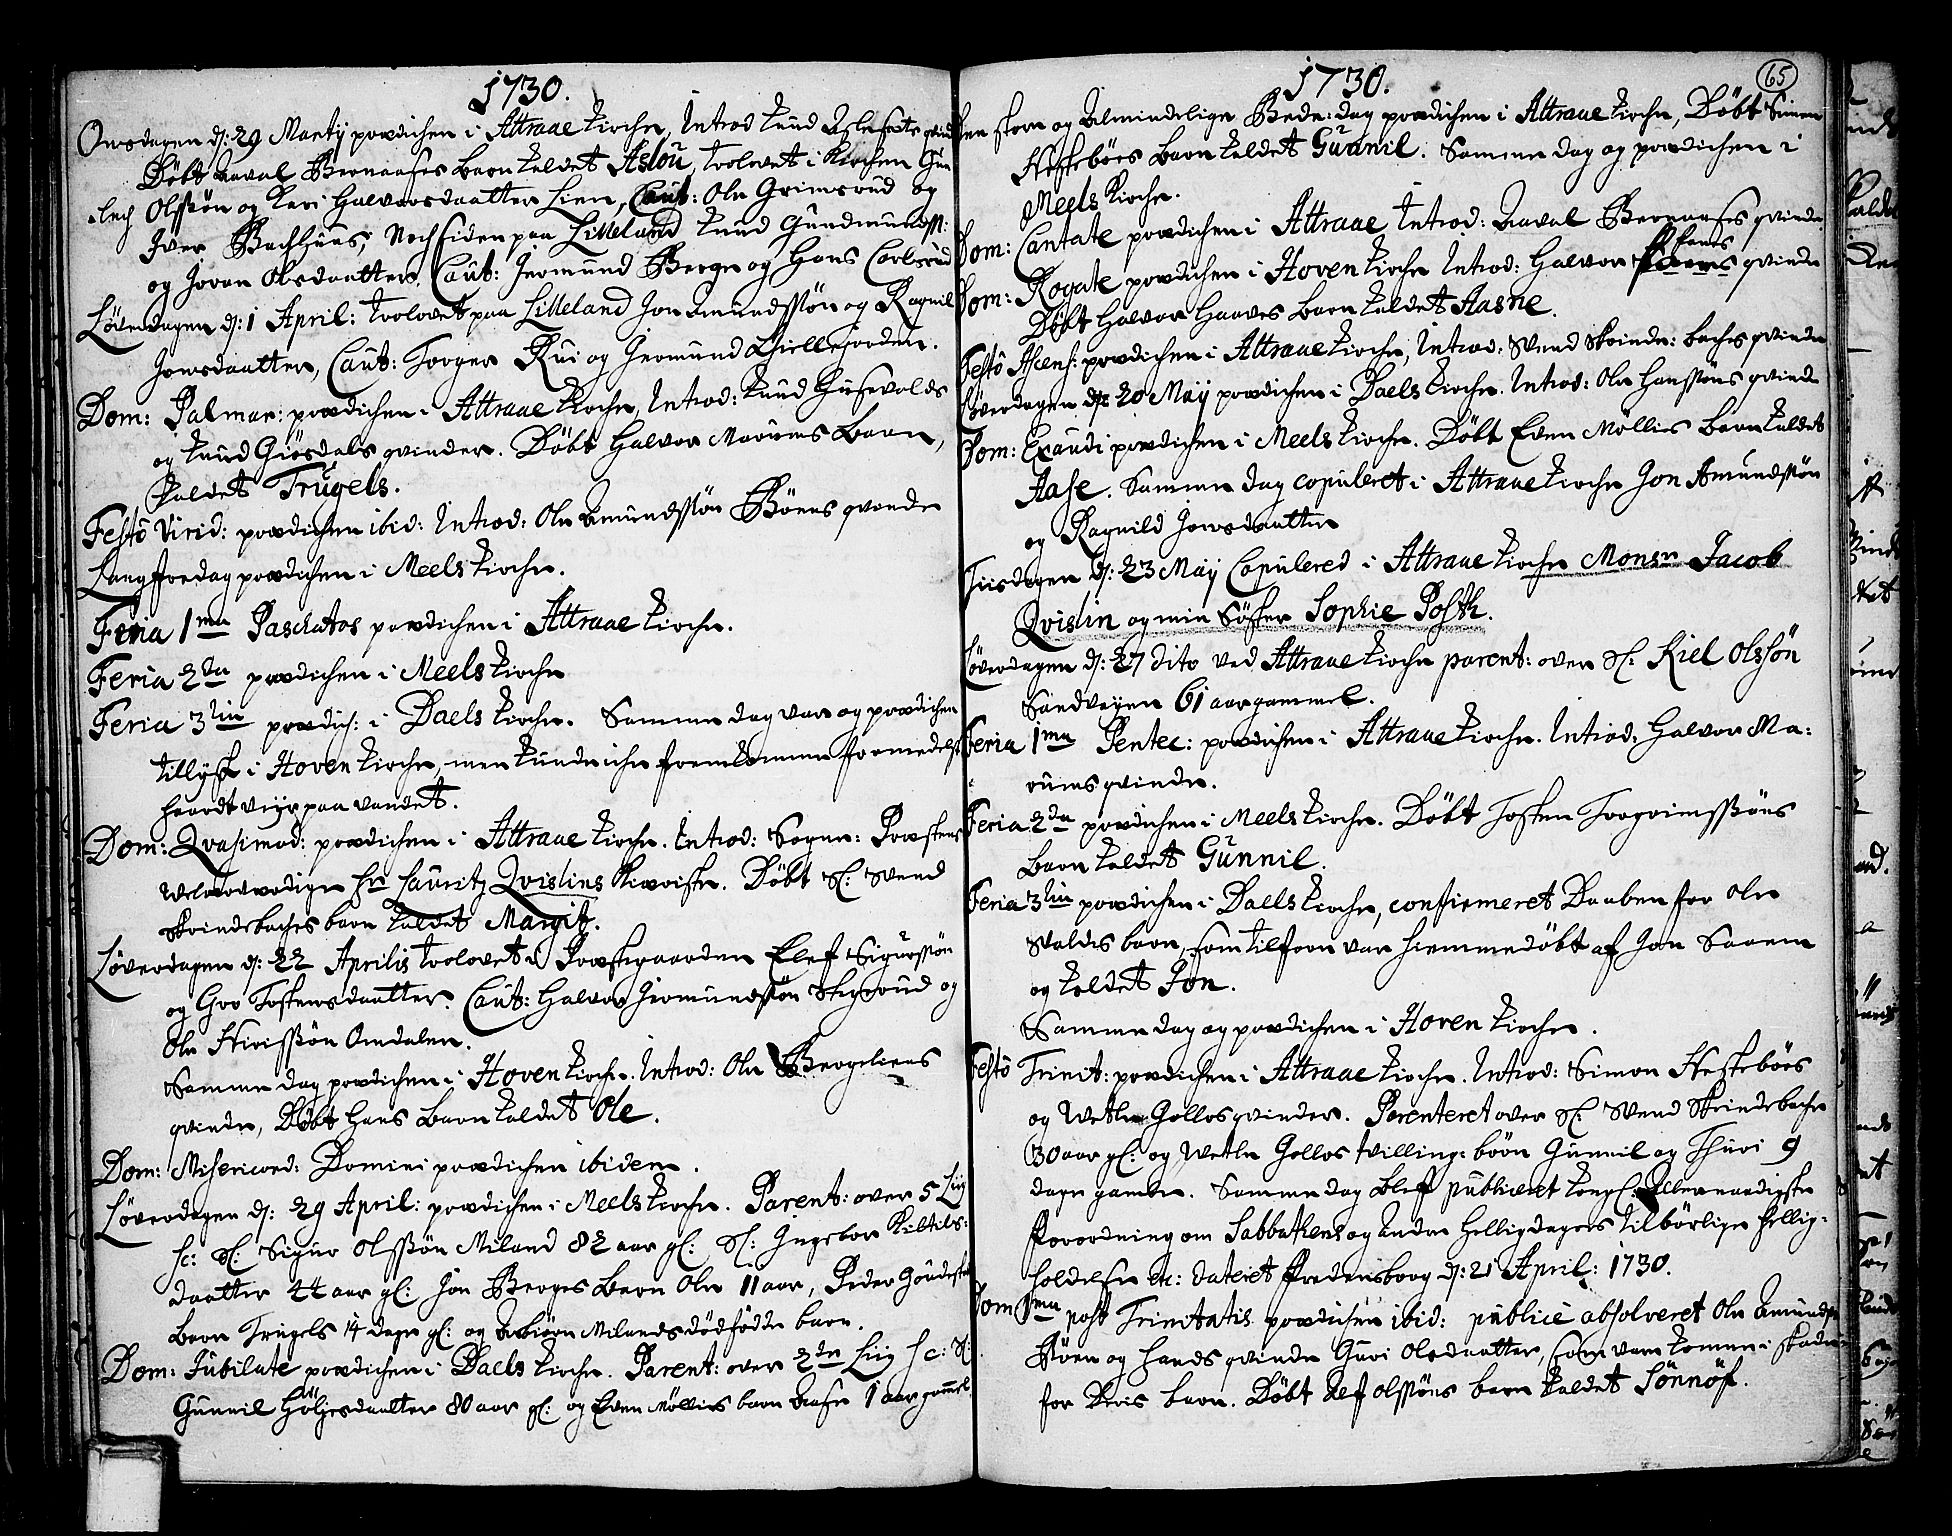 1730.
Onsdagen d: 29 Martij prædichen i Attraae kirche, Introd: Knud
Døbt Aaval Bernaases barn kaldet Aslou, troloved i Kirchen Gun
lech Olssøn og Kari Halvorsdaatter Lien, Caut: Ole Grimsrud og
Iver Bachhuus; Noch siden paa Lilleland Knud Gundmundss:
og Joran Olsdaatter. Caut: Jermund Berge og Hans Carlsrud
Løverdagen d: 1 April: trolovet paa Lilleland Jon Amundssøn og Ragnil
Joensdaatter, Caut: Torger Rui og Jermund
Dom: Palmar: prædichen i Attraae kirche, Introd: Knud Gusevolds
og Knud Giøsdals qvinder. Døbt Halvor Marums Barn,
kaldet Trugels.
Festô Virid: prædichen ibid: Introd: Ole Amundssøn Bøens qvinde
Langfredag prædichen i Meels kirche.
Feria 1ma Paschatos prædichen i Attraae kirche.
Feria 2da prædichen i Meels kirche
Feria 3tia prædich: i Daels kirche. Samme dag var og prædichen
tillyst i Hoven kirche, men kunde iche fremkomme formedelst
haardt vejr paa vandet.
Dom: Qvasimod: prædichen i Attraae kirche. Introd: Sogne: Præstens
Welærværdige Hr Lauritz Qvislins Kiæriste. Døbt Sl: Svend
Skrindsbaches barn kaldet Margit.
Løverdagen d: 22 Aprilis trolovet i Præstegaarden Elef Sigurssøn
og Gro Tostensdaatter. Caut: Halvor Jermundssøn og
Ole Omdalen.
Samme dag prædichen i Hoven kirche. Introd: Ole Bergeliens
qvinde, Døbt Hans barn kaldet Ole.
Dom: Misericord: Domini prædichen ibidem.
Løverdagen d: 29 April: prædichen i Meels kirche. Parent: over 5 Liig
sc: Sl: Sigur Olssøn Miland 82 aar gl: Sl: Ingebor Kiltils:
daatter 24 aar gl: Jon Berges Barn Ole 11 aar, Peder
barn Trugels 14 dage gl: og Asbiørn Milands dødfødde barn.
Dom: Jubilate prædichen i Daels kirche. Parent: over 2de Liig sc: Sl:
Gunnil Høljesdaatter 80 aar gl: og Even Møllies barn Aase 1 aar gammel
1730.
65
og Almindelige Bede: dag prædichen i Attraae kirche, Døbt Simen
Hestebøes barn kaldet Gunnil. Samme dag og prædichen i
Meels Kirche.
Dom: Cantate prædichen i Attraae Introd: Aaval Bernaases qvinde
Dom: Rogate prædichen i Hoven kirche Introd: Halvor qvinde
Døbt Halvor Haaves barn kaldet Aasne.
Festô Ascens: prædichen i Attraae kirche, Introd: Svend Skrinds: baches qvinde
Løverdagen d: 20 Maij prædichen i Daels kirche. Introd: Ole Hanssøns qvinde
Dom: Exaudi prædichen i Meels kirche. Døbt Even Møllies barn kaldet
Aase. Samme dag copuleret i Attraae kirche Jon Amundssøn
og Ragnild Joensdaatter
Tiisdagen d: 23 Maij Copulered i Attraae kirche Monsr Jacob
Qvislin og min Søster Sophie Posth.
Løverdagen d: 27 dito ved Attraae kirche parent: over Sl: Kiel Olssøn
Sandvigen 61 aar gammel.
Feria 1ma Pentec: prædichen i Attraae kirche. Introd: Halvor Ma:
rums qvinde.
Feria 2da prædichen i Meels kirche. Døbt Tosten Torgrimssøns
barn kaldet Gunnil.
Feria 3tia prædichen i Daels kirche, confirmeret Daaben for Ole
Svaldis barn, som tilforn var hiemmedøbt af Jon Saaem
og kaldet Jon.
Samme dag og prædichen i Hoven kirche.
Festô Trinit: prædichen i Attraae kirche. Introd: Simon Hestebøes
og Wetle Gollos qvinder. Parenteret over Sl: Svend Skrindsbache
30 aar gl: og Wetle Gollos tvilling: børn Gunnil og Thuri 9
dage gamle. Samme dag blef publiceret Kongl: Allernaadigste
Forordning om Sabbathens og andre Helligdagers tilbørlige Hellig:
holdelse etc: dateret Fredensborg d: 21 April: 1730.
Dom 1ma post Trinitatis prædichen ibid: publicè absolveret Ole Amundss
Bøen og hands qvinde Guri Olsdaatter, som vare komne i skade
for deris barn. Døbt Alf Olssøns barn kaldet Sønnøf.